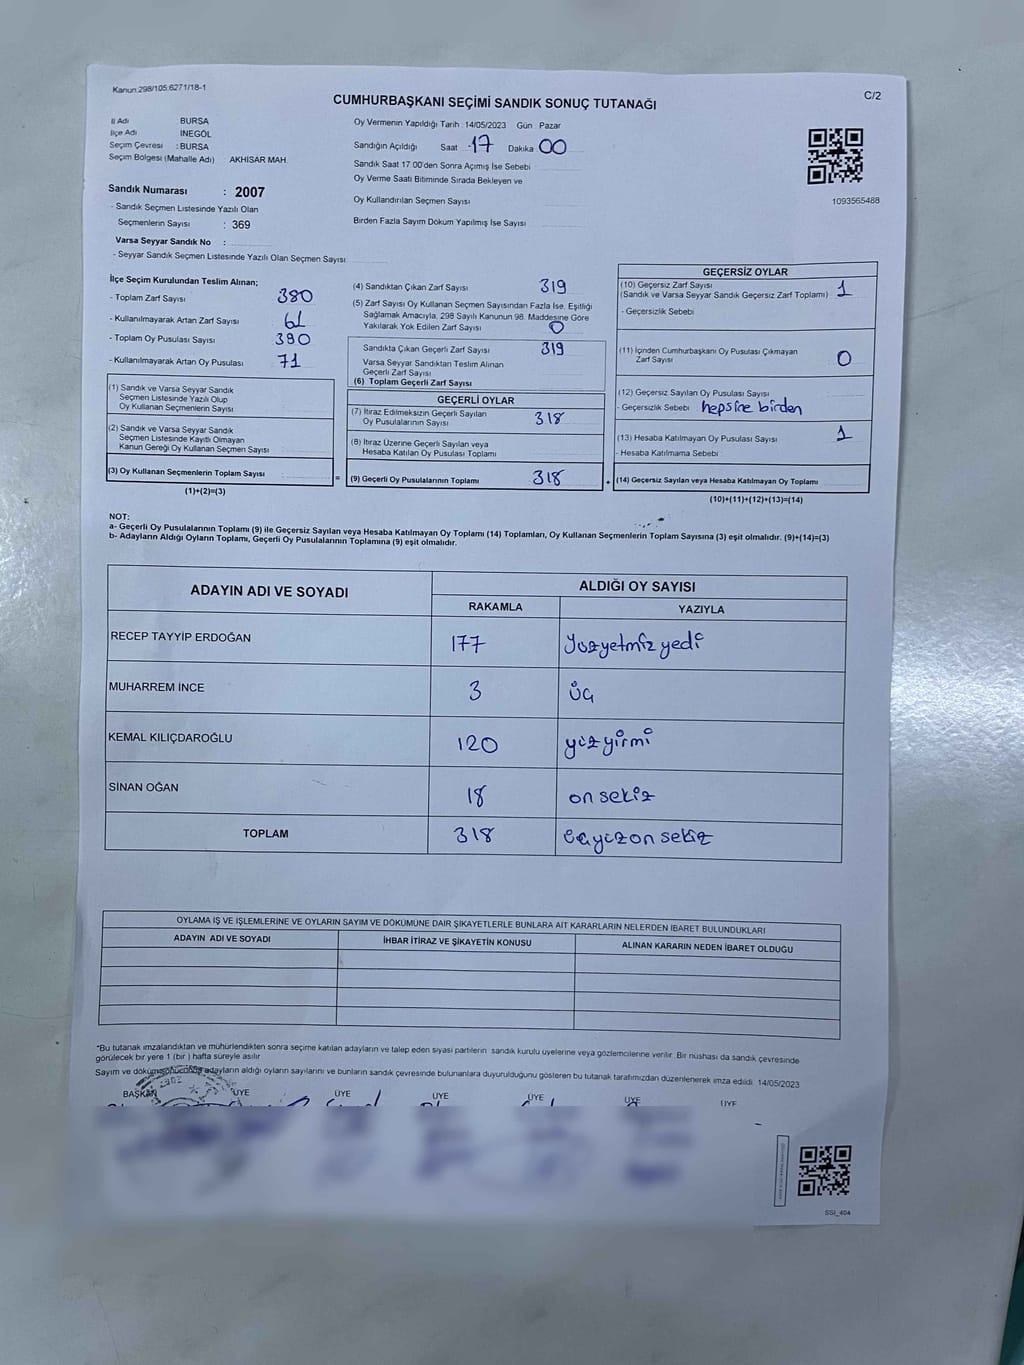 Kanun:298/105:6271/18-1
C/2
CUMHURBAŞKANI SEÇİMİ SANDIK SONUÇ TUTANAĞI
İl Adı BURSA
İlçe Adı İNEGÖL
Seçim Çevresi : BURSA
Seçim Bölgesi (Mahalle Adı) AKHİSAR MAH.
Sandık Numarası : 2007
- Sandık Seçmen Listesinde Yazılı Olan
Seçmenlerin Sayısı : 369
Varsa Seyyar Sandık No :
- Seyyar Sandık Seçmen Listesinde Yazılı Olan Seçmen Sayısı
Oy Vermenin Yapıldığı Tarih : 14/05/2023 Gün Pazar
Sandığın Açıldığı Saat 17 Dakika 00
Sandık Saat 17 00'den Sonra Açımış İse Sebebi
Oy Verme Saati Bitiminde Sırada Bekleyen ve
Oy Kullandırılan Seçmen Sayısı
Birden Fazla Sayım Döküm Yapılmış İse Sayısı
1093565488
İlçe Seçim Kurulundan Teslim Alınan;
- Toplam Zarf Sayısı 380
- Kullanılmayarak Artan Zarf Sayısı 61
- Toplam Oy Pusulası Sayısı 390
- Kullanılmayarak Artan Oy Pusulası 71
(1) Sandık ve Varsa Seyyar Sandık
Seçmen Listesinde Yazılı Olup
Oy Kullanan Seçmenlerin Sayısı
(2) Sandık ve Varsa Seyyar Sandık
Seçmen Listesinde Kayıtlı Olmayan
Kanun Gereği Oy Kullanan Seçmen Sayısı
(3) Oy Kullanan Seçmenlerin Toplam Sayısı
(1)+(2)=(3)
=
(4) Sandıktan Çıkan Zarf Sayısı 319
(5) Zarf Sayısı Oy Kullanan Seçmen Sayısından Fazla İse, Eşitliği
Sağlamak Amacıyla, 298 Sayılı Kanunun 98. Maddesine Göre
Yakılarak Yok Edilen Zarf Sayısı 0
Sandıkta Çıkan Geçerli Zarf Sayısı 319
Varsa Seyyar Sandıktan Teslim Alınan
Geçerli Zarf Sayısı
(6) Toplam Geçerli Zarf Sayısı
GEÇERLİ OYLAR
(7) İtiraz Edilmeksizin Geçerli Sayılan
Oy Pusulalarının Sayısı 318
(8) İtiraz Üzerine Geçerli Sayılan veya
Hesaba Katılan Oy Pusulası Toplamı
(9) Geçerli Oy Pusulalarının Toplamı 318
+
GEÇERSİZ OYLAR
(10) Geçersiz Zarf Sayısı 1
(Sandık ve Varsa Seyyar Sandık Geçersiz Zarf Toplamı)
- Geçersizlik Sebebi
(11) İçinden Cumhurbaşkanı Oy Pusulası Çıkmayan
Zarf Sayısı 0
(12) Geçersiz Sayılan Oy Pusulası Sayısı
- Geçersizlik Sebebi hepsine birden
(13) Hesaba Katılmayan Oy Pusulası Sayısı 1
- Hesaba Katılmama Sebebi
(14) Geçersiz Sayılan veya Hesaba Katılmayan Oy Toplamı
(10)+(11)+(12)+(13)=(14)
NOT:
a- Geçerli Oy Pusulalarının Toplamı (9) ile Geçersiz Sayılan veya Hesaba Katılmayan Oy Toplamı (14) Toplamları, Oy Kullanan Seçmenlerin Toplam Sayısına (3) eşit olmalıdır. (9)+(14)=(3)
b- Adayların Aldığı Oyların Toplamı, Geçerli Oy Pusulalarının Toplamına (9) eşit olmalıdır.
ADAYIN ADI VE SOYADI ALDIĞI OY SAYISI
RAKAMLA YAZIYLA
RECEP TAYYİP ERDOĞAN 177 yüzyetmiz yedi
MUHARREM İNCE 3 üç
KEMAL KILIÇDAROĞLU 120 yüzyirmi
SİNAN OĞAN 18 on sekiz
TOPLAM 318 üçyüzon sekiz
OYLAMA İŞ VE İŞLEMLERİNE VE OYLARIN SAYIM VE DÖKÜMÜNE DAİR ŞİKAYETLERLE BUNLARA AİT KARARLARIN NELERDEN İBARET BULUNDUKLARI
ADAYIN ADI VE SOYADI İHBAR İTİRAZ VE ŞİKAYETİN KONUSU ALINAN KARARIN NEDEN İBARET OLDUĞU
*Bu tutanak imzalandıktan ve mühürlendikten sonra seçime katılan adayların ve talep eden siyasi partilerin sandık kurulu üyelerine veya gözlemcilerine verilir. Bir nüshası da sandık çevresinde
görülecek bir yere 1 (bir) hafta süreyle asılır
Sayım ve döküm sonucunda adayların aldığı oyların sayılarını ve bunların sandık çevresinde bulunanlara duyurulduğunu gösteren bu tutanak tarafımızdan düzenlenerek imza edildi. 14/05/2023
BAŞKAN ÜYE ÜYE ÜYE ÜYE ÜYE ÜYE
SSI_404